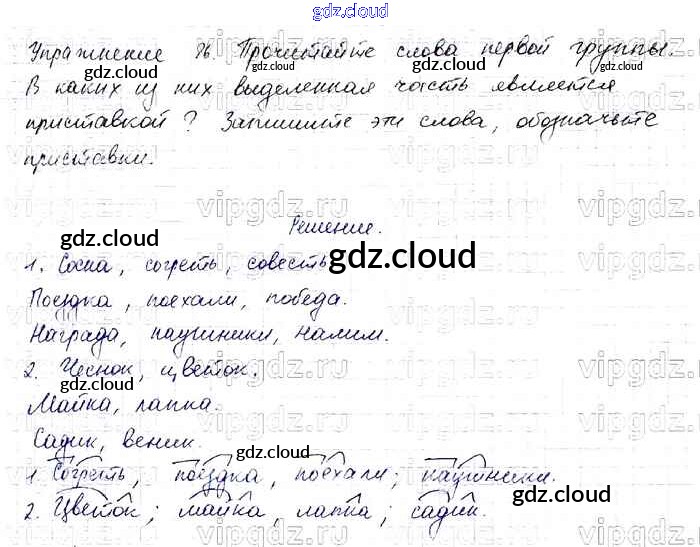 gdz.cloud
Упражнение 86. Прочитайте слова первой группы.
gdz.cloud gdz.cloud
В каких из них выделенная часть является
приставкой? Запишите эти слова, обозначьте
приставки.
vipgdz.ru vipgdz.ru vipgdz.ru vipgdz.ru
Решение.
gdz.cloud gdz.cloud
1. Сосна, согреть, совесть.
Поездка, поехали, победа.
Награда, наушники, налим.
gdz.cloud gdz.cloud
2. Чеснок, цветок.
Майка, лапка.
Садик, веник.
gdz.cloud
1. Согреть, поездка, поехали; наушники.
gdz.cloud gdz.cloud
2. Цветок; майка, лапка; садик.
gdz.cloud